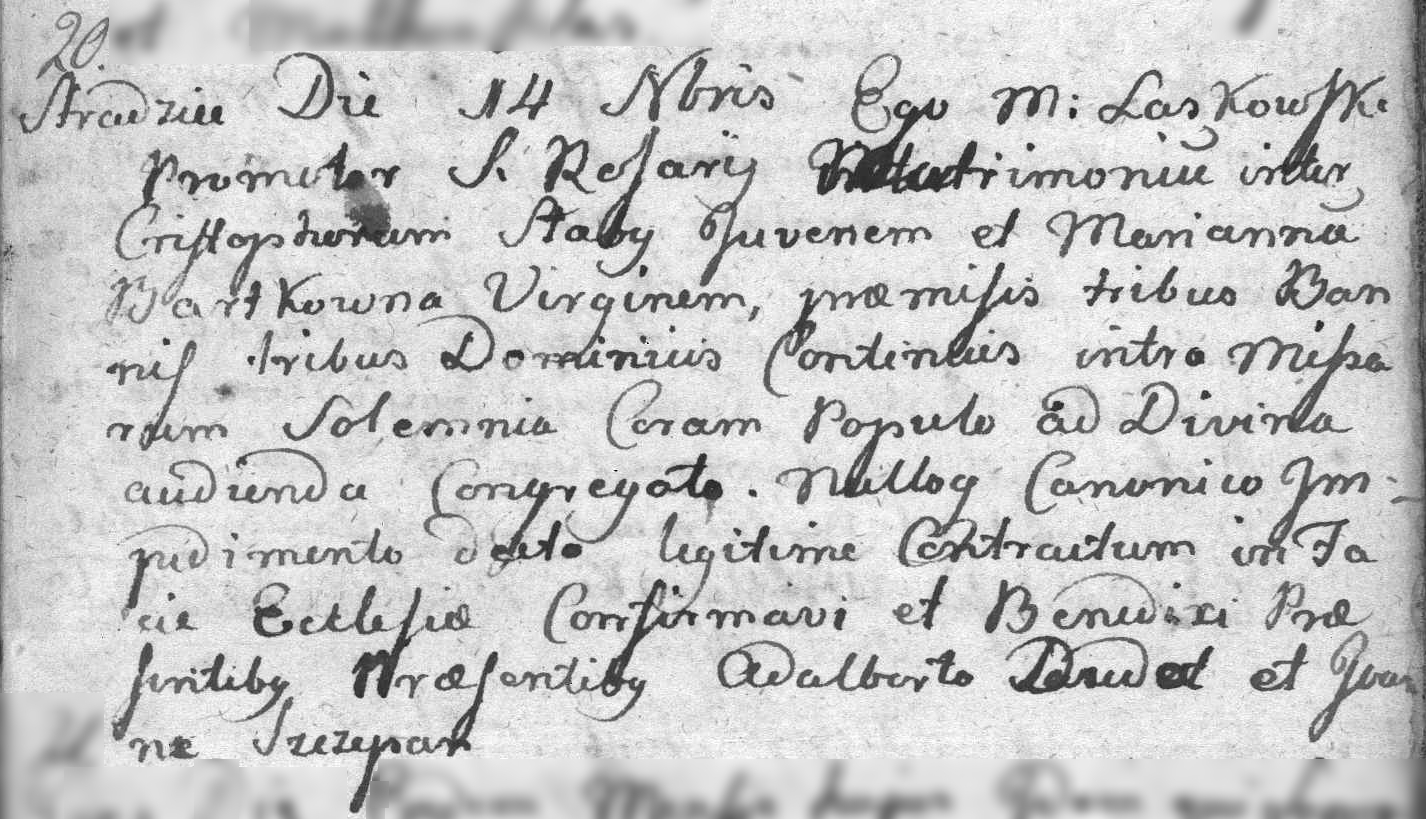 20.
Stradzie Die 14 Nbris Ego M: Laskowski
Promotor S. Rosarij Matrimoniū inter
Cristophorum Staby Juvenem et Mariannā
Bartkowna Virginem, præmisis tribus Ban
nis tribus Dominicis Continuis intra Missa
rum Solemnia Coram Populo ad Divina
audienda Congregato. Nulloq Canonico Im-
pedimento legitime Contractum in Fa
cie Ecclesiæ Confirmavi et Benedixi Præ
sentiby Præsentiby Adalberto et Joan
ne Szczepan